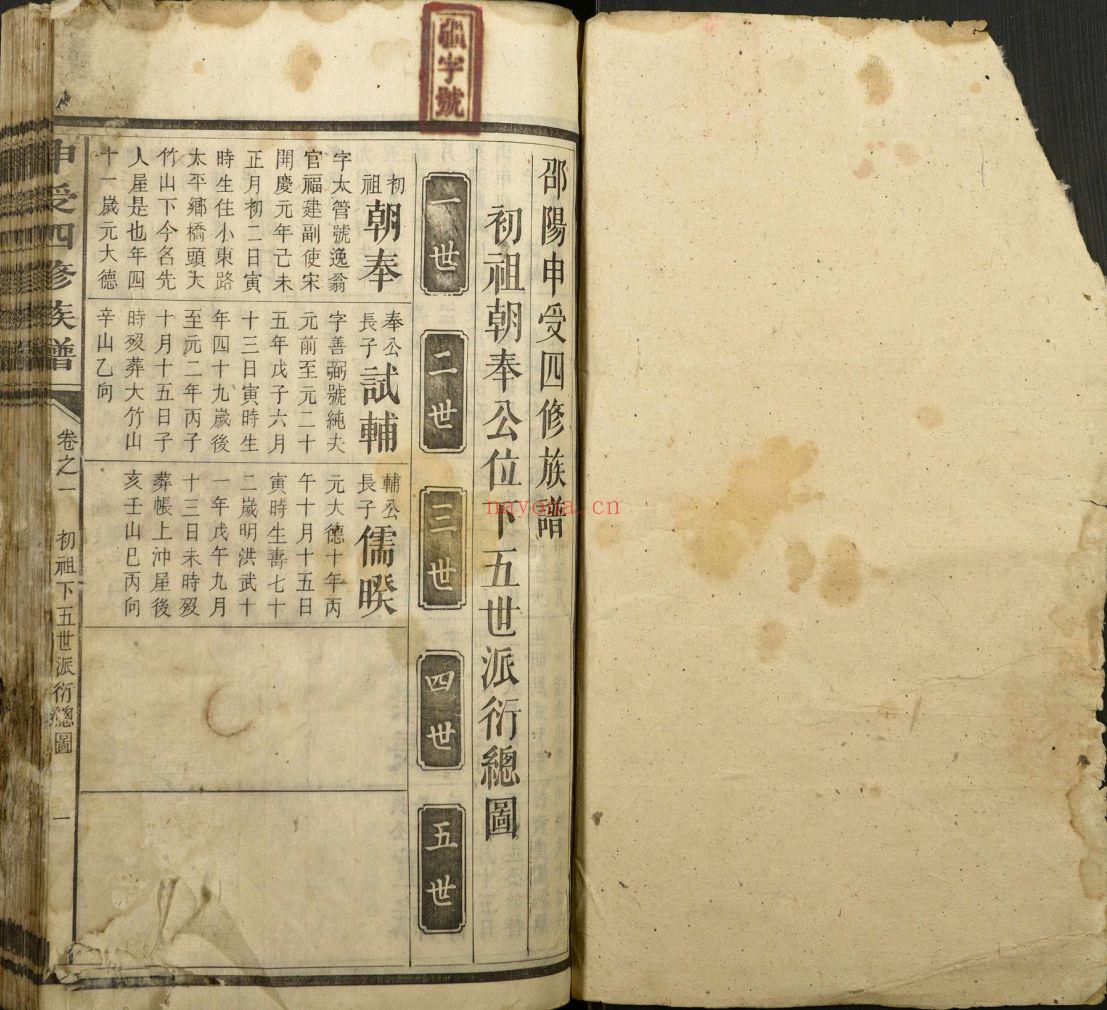 字號
邵陽申受四修族譜
初祖朝奉公位下五世派衍總圖
一世
二世
三世
四世
五世
初祖朝奉
字太管號逸翁
官福建副使宋
開慶元年己未
正月初二日寅
時生住小東路
太平鄉橋頭大
竹山下今名先
人屋是也年四
十一歲元大德
奉公長子試輔
字善弼號純夫
元前至元二十
五年戊子六月
十三日寅時生
年四十九歲後
至元二年丙子
十月十五日子
時歿葬大竹山
辛山乙向
輔公長子儒暌
元大德十年丙
午十月十五日
寅時生壽七十
二歲明洪武十
一年戊午九月
十三日未時歿
葬帳上沖屋後
亥壬山巳丙向
申受四修族譜
卷之一
初祖下五世派衍總圖
一
nayona.cn